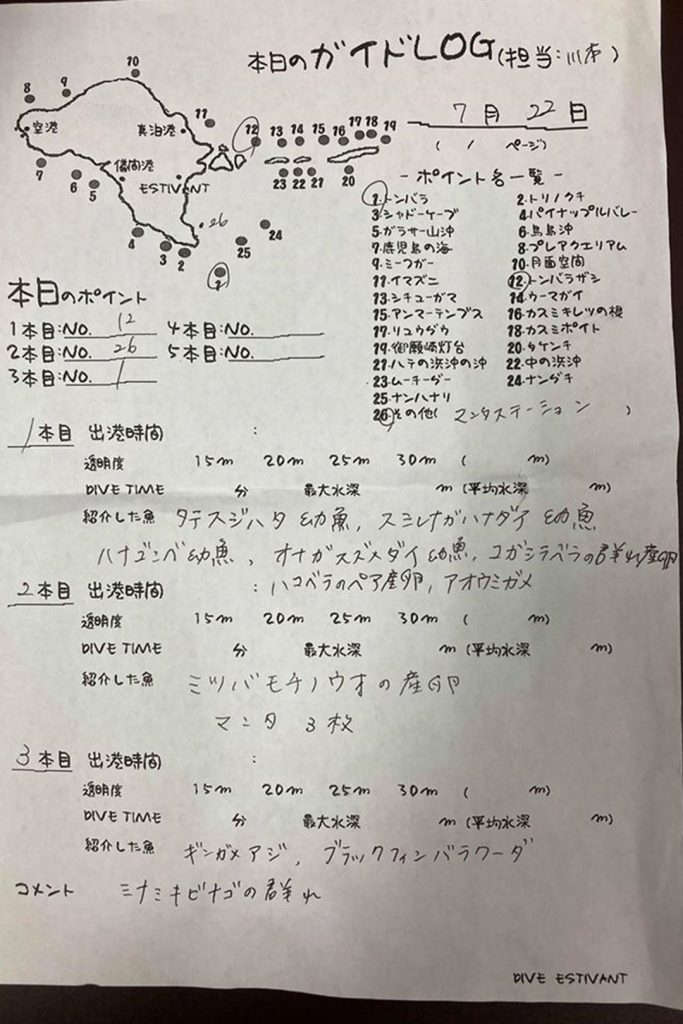 本日のガイドLOG(担当:川本)
7月 22日
( / ページ)
8 9 10 11 12 13 14 15 16 17 18 19
空港 真泊港
儀間港
ESTIVANT
7 6 5 4 3 2 1 26 25 24 23 22 21 20
- ポイント名一覧 -
1.トンバラ 2.トリノクチ
3.シャドーケーブ 4.パイナップルバレー
5.ガラサー山沖 6.鳥島沖
7.鹿児島の海 8.プレアクエリアム
9.ミーフガー 10.月面空間
11.イマズニ 12.トンバラザシ
13.シチューガマ 14.ウーマガイ
15.アンマーテンブス 16.カスミキレツの根
17.リュウダウ 18.カスミポイト
19.御願崎灯台 20.タケンチ
21.ハテの浜沖の沖 22.中の浜沖
23.ムーチーダー 24.ナンダチ
25.ナンハナリ
26.その他( マンタステーション )
本日のポイント
1本目:NO. 12 4本目:NO.
2本目:NO. 26 5本目:NO.
3本目:NO. 1
1本目 出港時間 :
透明度 15m 20m 25m 30m ( m)
DIVE TIME 分 最大水深 m (平均水深 m)
紹介した魚 タテスジハタ幼魚, スミレナガハナダイ幼魚
ハナゴンベ幼魚, オナガスズメダイ幼魚, コガシラベラの群れ産卵
2本目 出港時間 : ハコベラのペア産卵, アオウミガメ
透明度 15m 20m 25m 30m ( m)
DIVE TIME 分 最大水深 m (平均水深 m)
紹介した魚 ミツバモチノウオの産卵
マンタ 3枚
3本目 出港時間 :
透明度 15m 20m 25m 30m ( m)
DIVE TIME 分 最大水深 m (平均水深 m)
紹介した魚 ギンガメアジ, ブラックフィンバラクーダ
コメント ミナミキビナゴの群れ
DIVE ESTIVANT